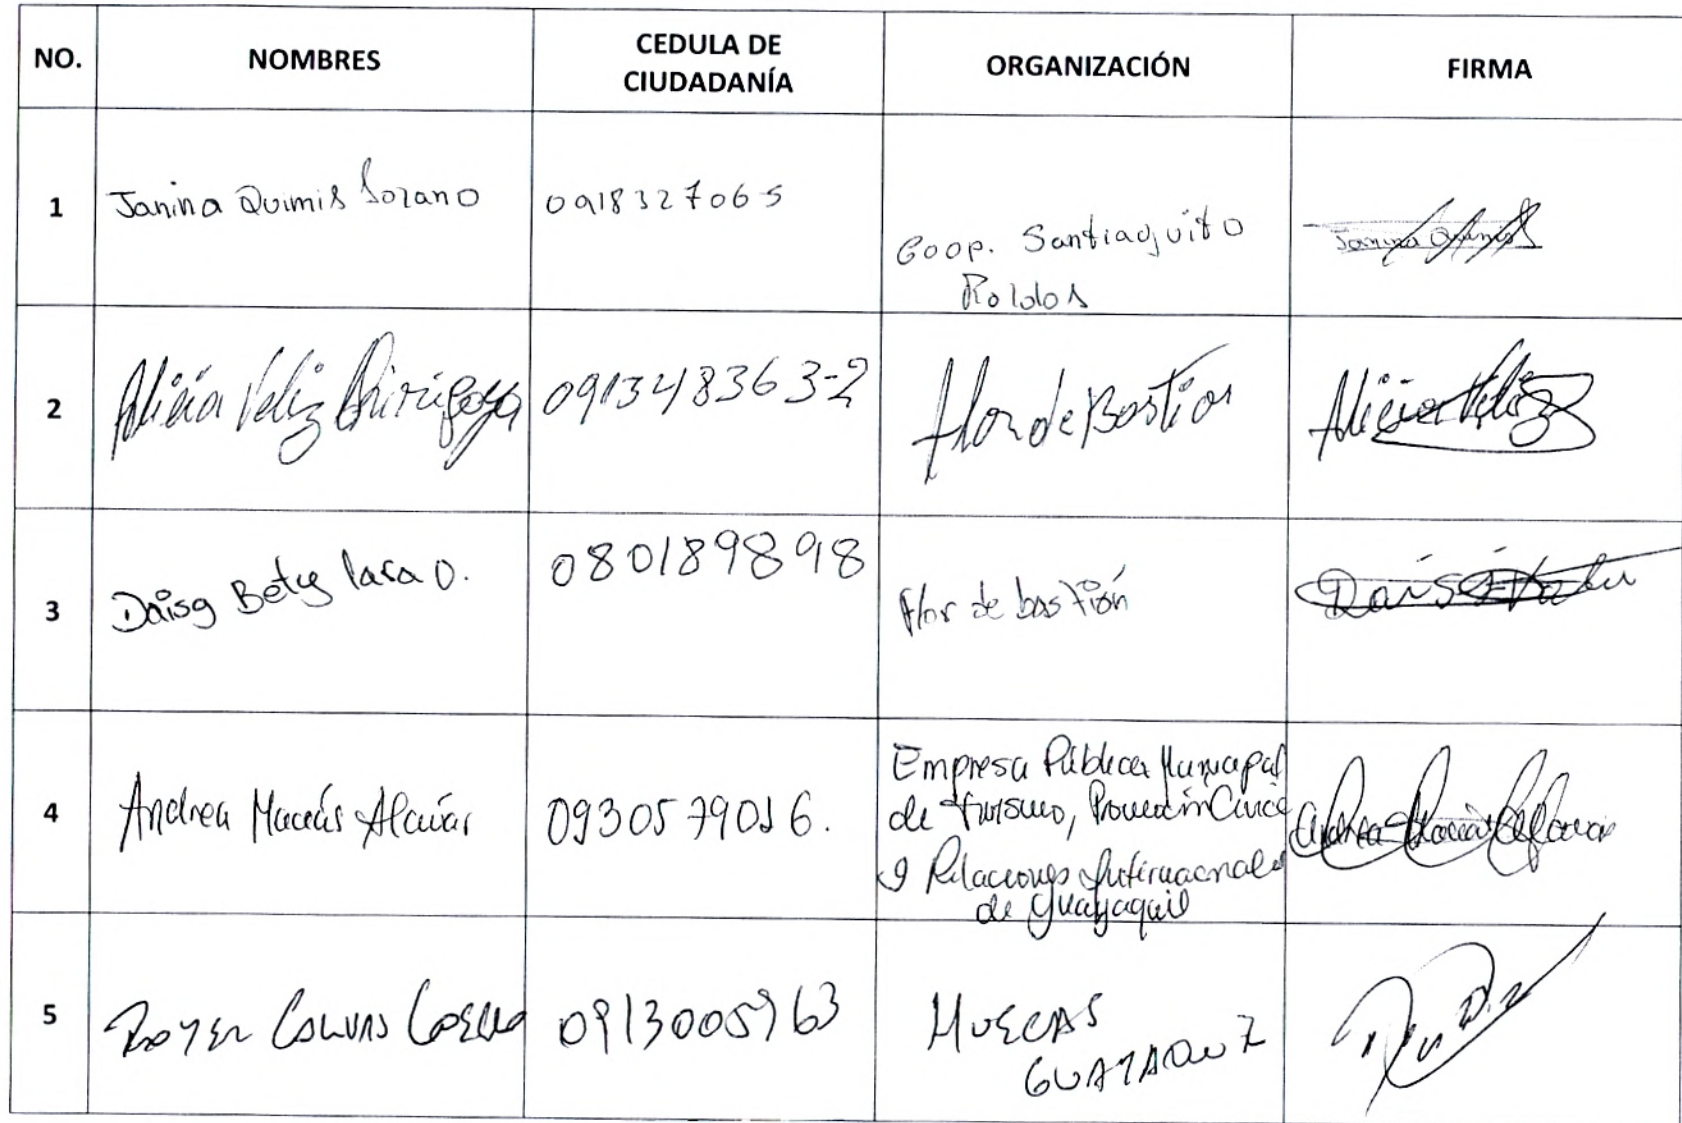 NO. NOMBRES CEDULA DE CIUDADANÍA ORGANIZACIÓN FIRMA
1 Janina Quimis Lozano 0918327065 Coop. Santiaguito
Roldos
Janina Quimis
2 Alicia Veliz 091348363-2 Flor de Bastion Alicia Veliz
3 Daisy Bety Lara O. 0801898918 Flor de bastión
4 Andrea Macías Alcívar 0930579016. Empresa Pública Municipal
de Turismo, Promoción Cívica
y Relaciones Internacionales
de Guayaquil
Andrea Macías Alcívar
5 0913005963 HUECAS